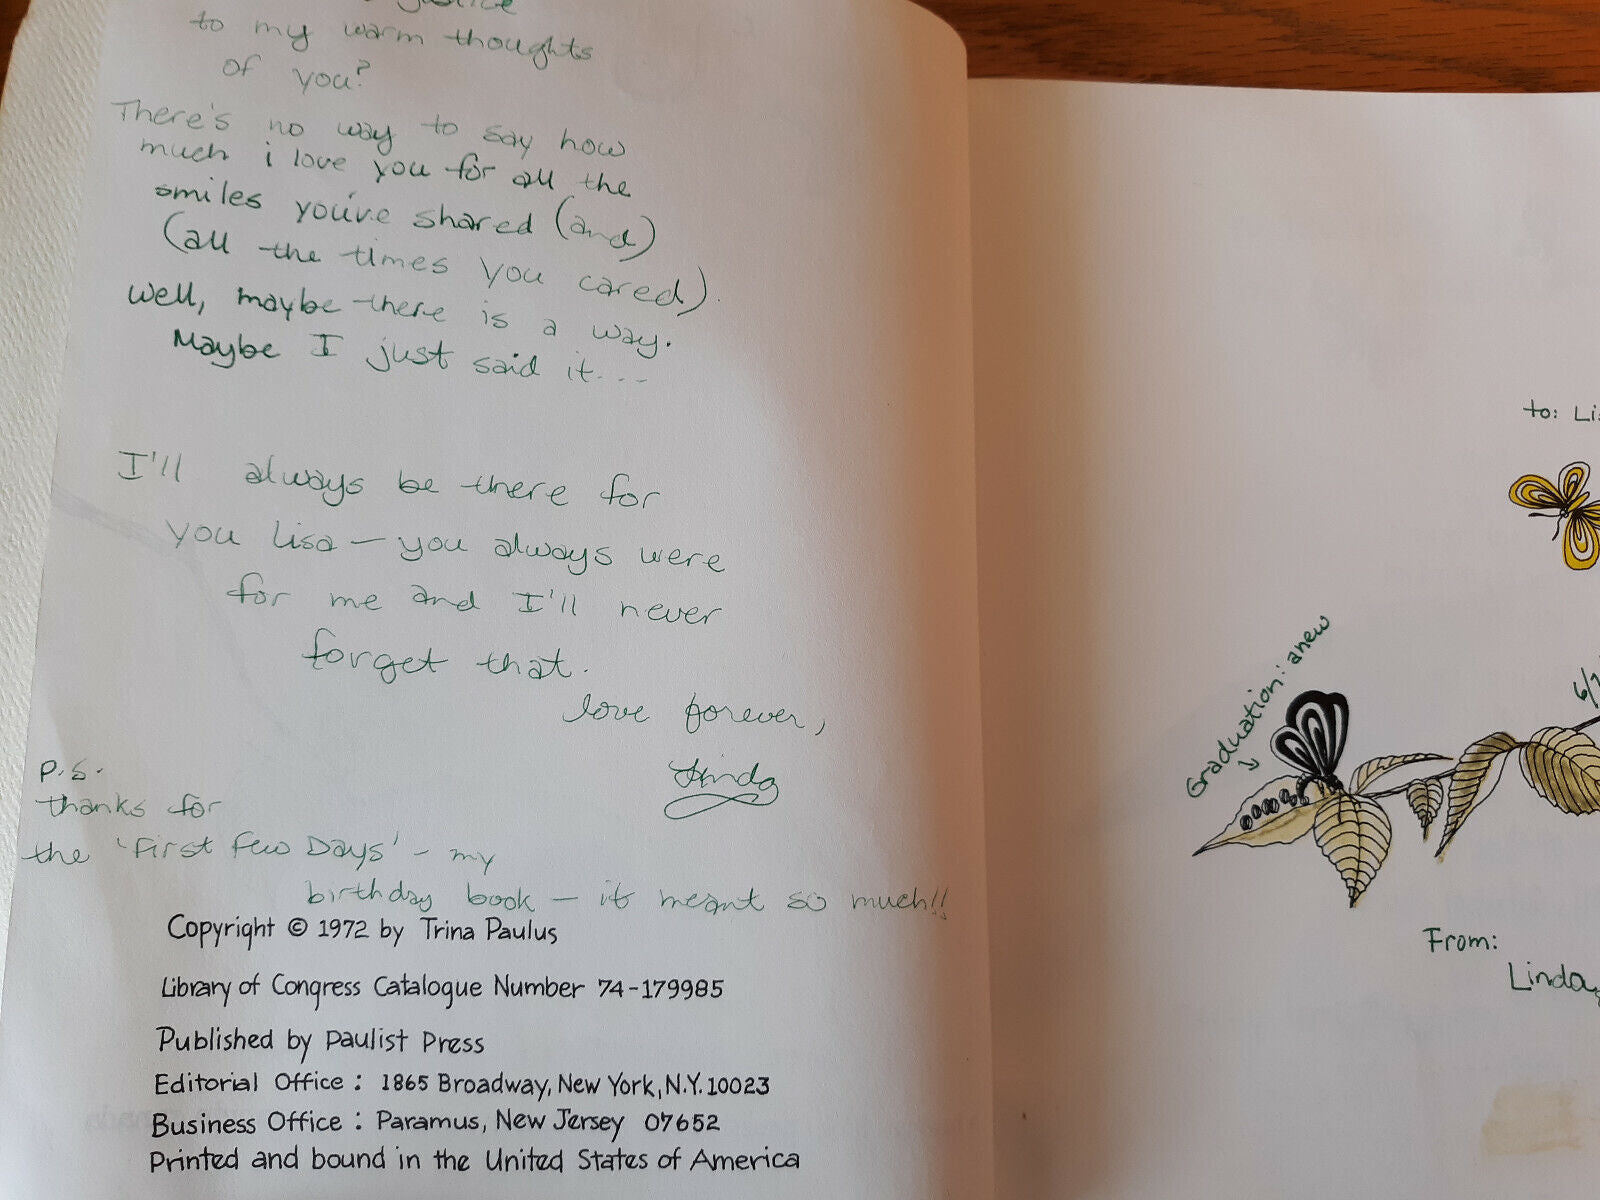 justice
to my warm thoughts
of you?
There's no way to say how
much i love you for all the
smiles you've shared (and)
(all the times you cared).
Well, maybe there is a way.
Maybe I just said it....
I'll always be there for
you Lisa — you always were
for me and I'll never
forget that.
love forever,
Linda
P.S.
thanks for
the 'First Few Days' - my
birthday book — it meant so much!!
Copyright © 1972 by Trina Paulus
Library of Congress Catalogue Number 74-179985
Published by Paulist Press
Editorial Office : 1865 Broadway, New York, N.Y. 10023
Business Office : Paramus, New Jersey 07652
Printed and bound in the United States of America
to: Lis
Graduation: anew
6/
From:
Linda